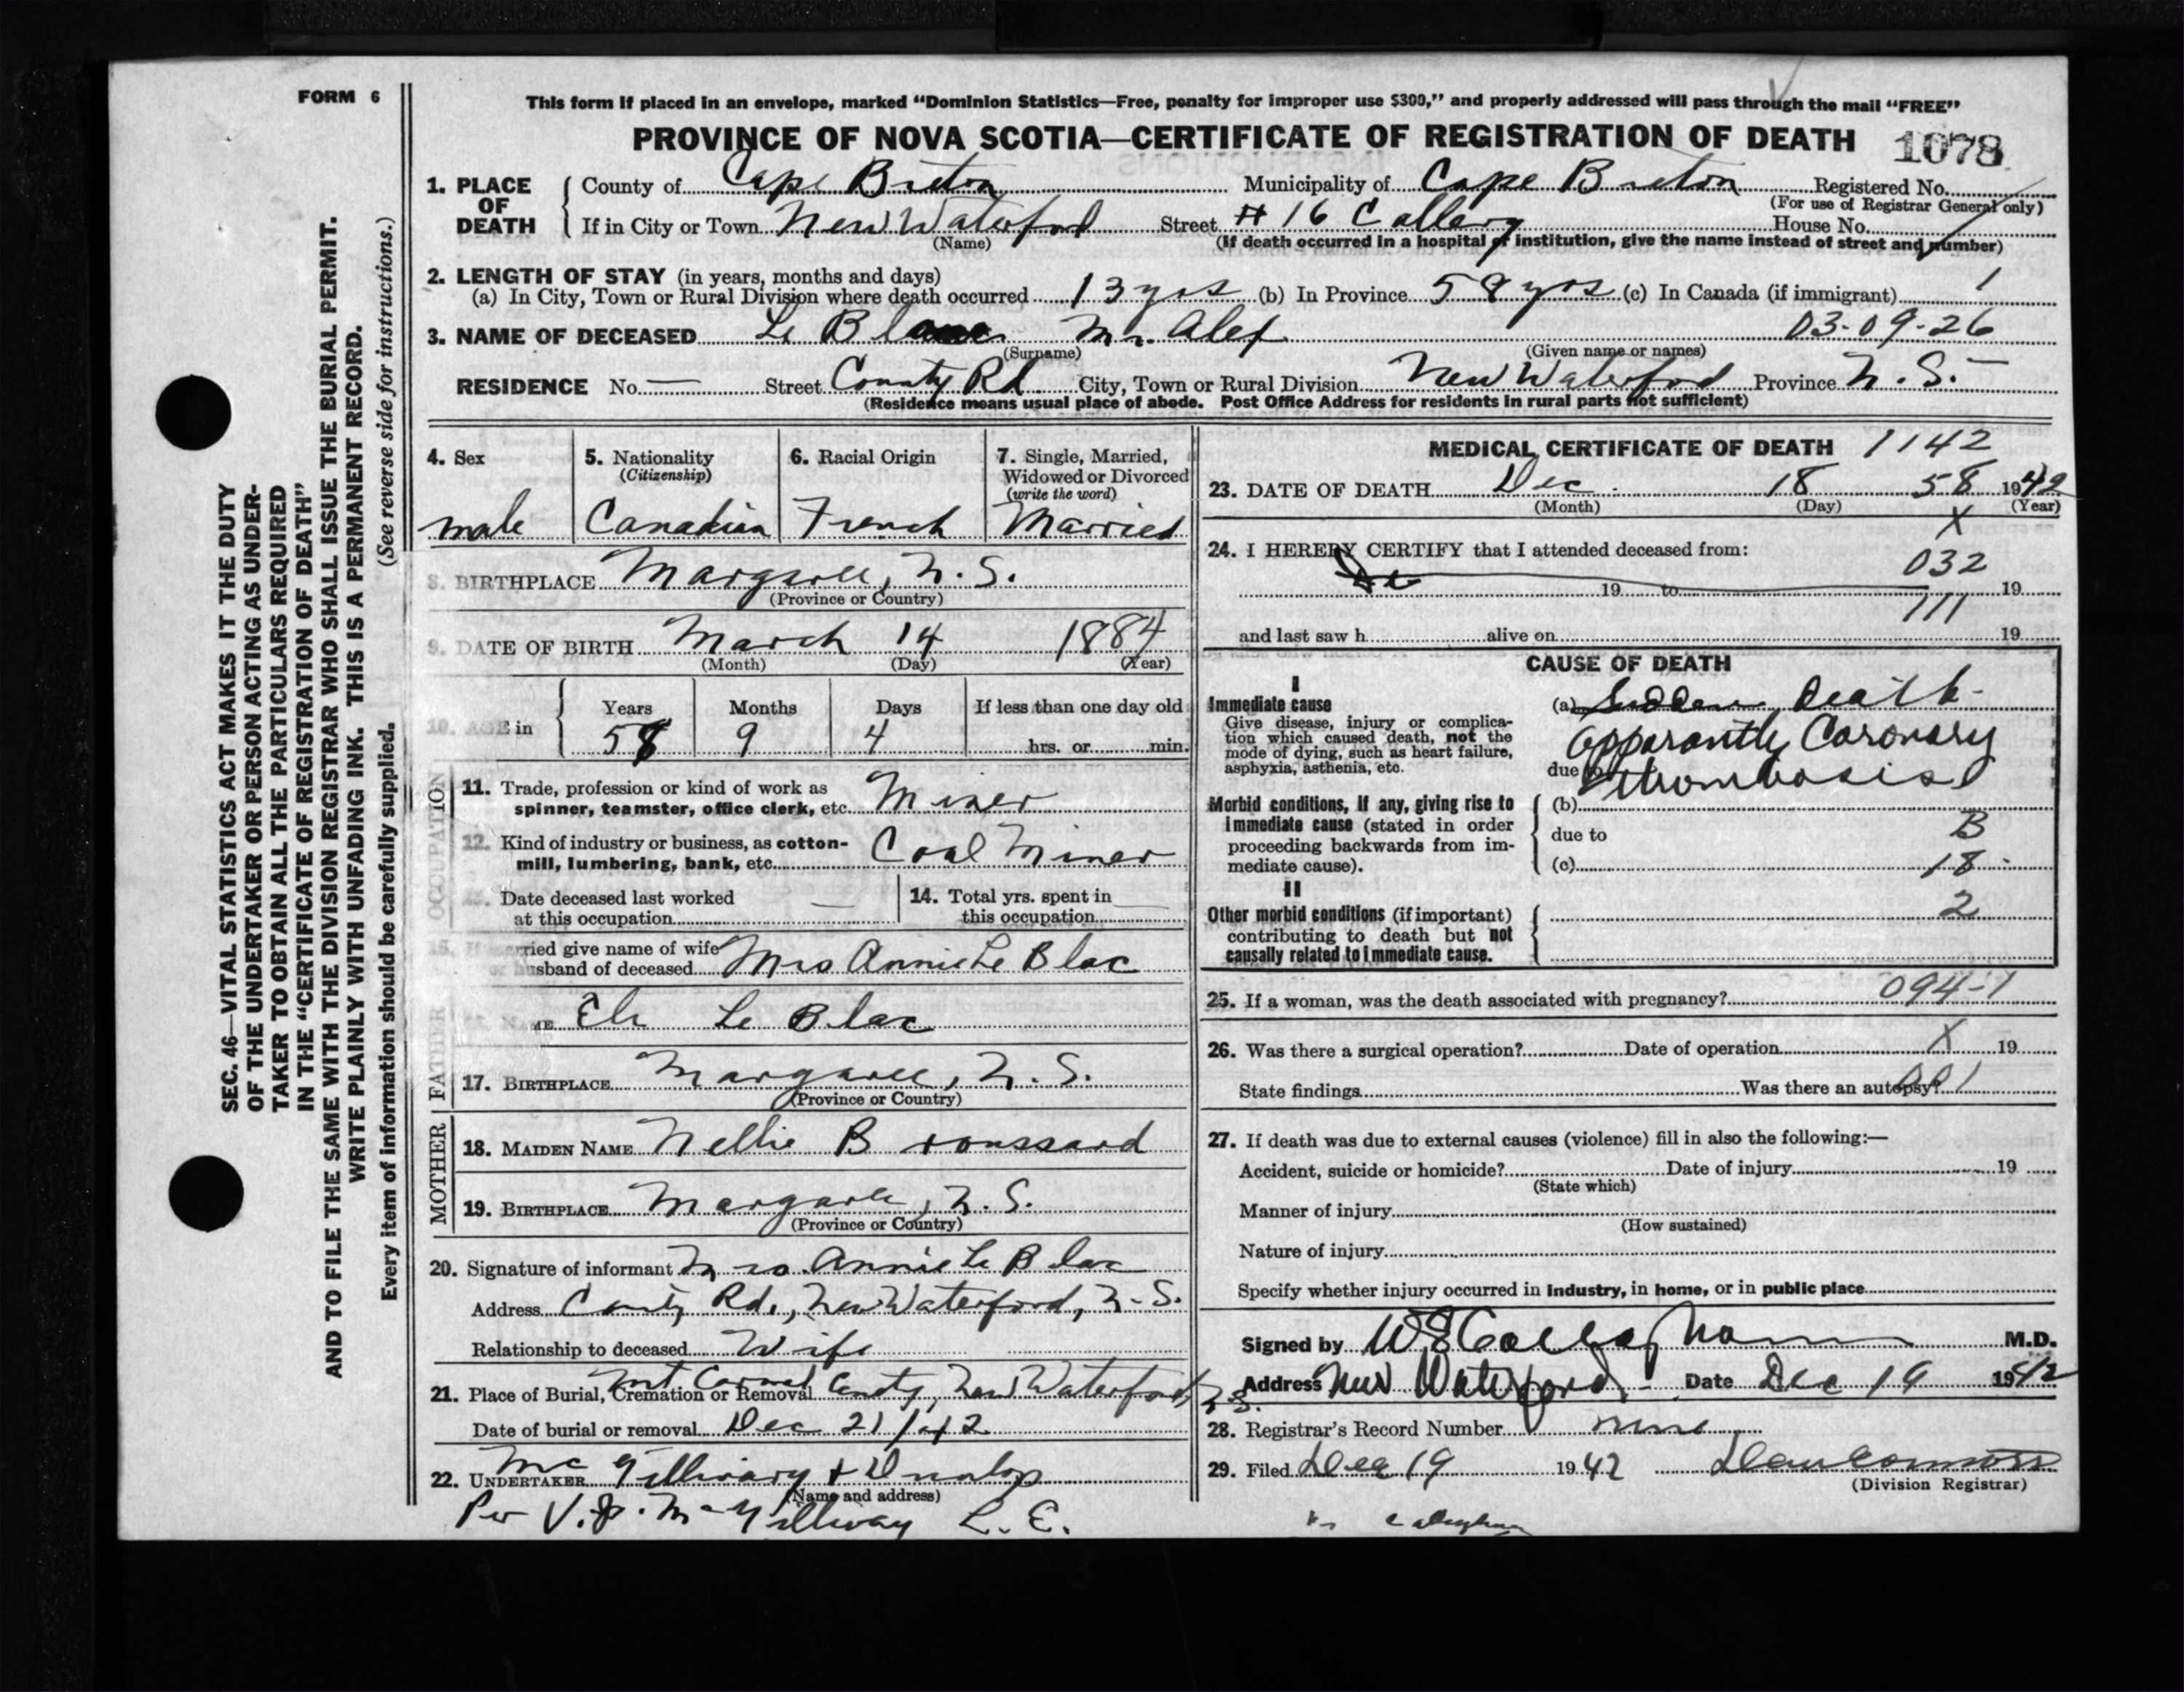 FORM 6
This form if placed in an envelope, marked “Dominion Statistics—Free, penalty for improper use $300,” and properly addressed will pass through the mail “FREE”
PROVINCE OF NOVA SCOTIA—CERTIFICATE OF REGISTRATION OF DEATH 1078
1. PLACE OF DEATH County of Cape Breton Municipality of Cape Breton Registered No.
(For use of Registrar General only)
If in City or Town New Waterford Street # 16 Collery House No.
(Name) (If death occurred in a hospital or institution, give the name instead of street and number)
2. LENGTH OF STAY (in years, months and days)
(a) In City, Town or Rural Division where death occurred 13 yrs (b) In Province 58 yrs (c) In Canada (if immigrant) 1
3. NAME OF DECEASED Le Blanc Mr. Alex 03-09-26
(Surname) (Given name or names)
RESIDENCE No. — Street County Rd City, Town or Rural Division New Waterford Province N. S.
(Residence means usual place of abode. Post Office Address for residents in rural parts not sufficient)
4. Sex male
5. Nationality (Citizenship) Canadian
6. Racial Origin French
7. Single, Married, Widowed or Divorced (write the word) Married
8. BIRTHPLACE Margaree, N. S.
(Province or Country)
9. DATE OF BIRTH March 14 1884
(Month) (Day) (Year)
10. AGE in Years Months Days If less than one day old
58 9 4 hrs. or min.
OCCUPATION
11. Trade, profession or kind of work as
spinner, teamster, office clerk, etc. Miner
12. Kind of industry or business, as cotton-
mill, lumbering, bank, etc. Coal Miner
13. Date deceased last worked
at this occupation —
14. Total yrs. spent in
this occupation —
15. If married give name of wife
or husband of deceased Mrs Annie Le Blac
FATHER
16. NAME Eli Le Blac
17. BIRTHPLACE Margaree, N. S.
(Province or Country)
MOTHER
18. MAIDEN NAME Nellie Broussard
19. BIRTHPLACE Margaree, N. S.
(Province or Country)
20. Signature of informant Mrs. Annie Le Blac
Address County Rd., New Waterford, N. S.
Relationship to deceased Wife
21. Place of Burial, Cremation or Removal Mt Carmel Cemty, New Waterford, N. S.
Date of burial or removal Dec 21/42
22. UNDERTAKER McGillivary & Dunlop
(Name and address)
Per V. J. McGillivary L. E.
MEDICAL CERTIFICATE OF DEATH 1142
23. DATE OF DEATH Dec. 18 58 1942
(Month) (Day) (Year)
X
24. I HEREBY CERTIFY that I attended deceased from:
032
19 to 19
111
and last saw h alive on 19
CAUSE OF DEATH
I
Immediate cause
Give disease, injury or complica-
tion which caused death, not the
mode of dying, such as heart failure,
asphyxia, asthenia, etc.
(a) Sudden Death
apparantly Coronary
due to thrombosis
Morbid conditions, if any, giving rise to
immediate cause (stated in order
proceeding backwards from im-
mediate cause).
(b)
due to B
(c) 18
II
Other morbid conditions (if important)
contributing to death but not
causally related to immediate cause.
2
25. If a woman, was the death associated with pregnancy? 094-1
26. Was there a surgical operation? Date of operation X 19
State findings Was there an autopsy? 001
27. If death was due to external causes (violence) fill in also the following:—
Accident, suicide or homicide? Date of injury 19
(State which)
Manner of injury
(How sustained)
Nature of injury
Specify whether injury occurred in industry, in home, or in public place
Signed by Callaghan M.D.
Address New Waterford. Date Dec 19 1942
28. Registrar's Record Number
29. Filed Dec 19 1942
(Division Registrar)
SEC. 46—VITAL STATISTICS ACT MAKES IT THE DUTY
OF THE UNDERTAKER OR PERSON ACTING AS UNDER-
TAKER TO OBTAIN ALL THE PARTICULARS REQUIRED
IN THE “CERTIFICATE OF REGISTRATION OF DEATH”
AND TO FILE THE SAME WITH THE DIVISION REGISTRAR WHO SHALL ISSUE THE BURIAL PERMIT.
WRITE PLAINLY WITH UNFADING INK. THIS IS A PERMANENT RECORD.
Every item of information should be carefully supplied. (See reverse side for instructions.)